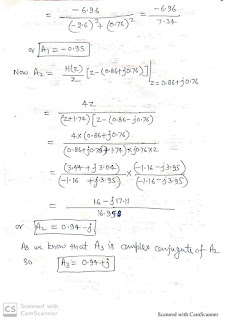 = -6.96 / (-2.6)² + (0.76)² = -6.96 / 7.34
or A₁ = -0.95
Now A₂ = H(z)/z [z-(0.86+j0.76)] | z=0.86+j0.76
= 4z / (z+1.74)[z-(0.86-j0.76)]
= 4×(0.86+j0.76) / (0.86+j0.76+1.74)×j0.76×2
= (3.44+j3.04) / (-1.16+j3.95) × (-1.16-j3.95) / (-1.16-j3.95)
= 16-j17.11 / 16.958
or A₂ = 0.94-j
As we know that A₃ is complex conjugate of A₂
so A₃ = 0.94+j
CS Scanned with CamScanner
Scanned with CamScanner